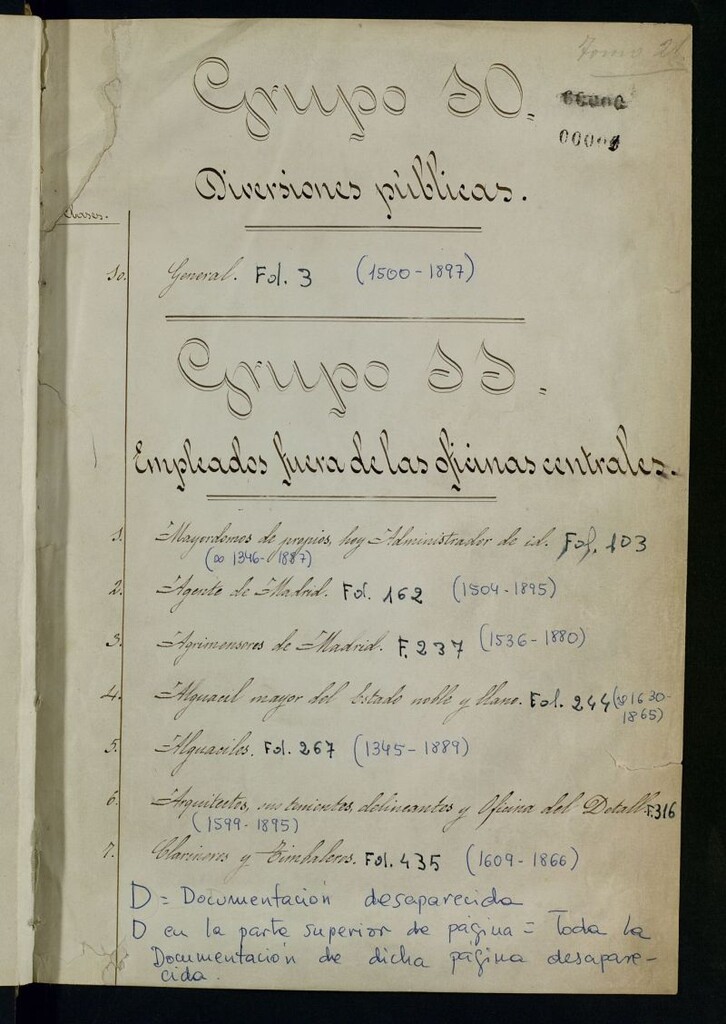 Tomo 21
Grupo 10.
00001
Diversiones públicas.
Clases.
10. General. Fol. 3 (1500-1897)
Grupo 11.
Empleados fuera de las oficinas centrales.
1. Mayordomos de propios, hoy Administrador de id. Fol. 103
(∞ 1346-1887)
2. Agente de Madrid. Fol. 162 (1504-1895)
3. Agrimensores de Madrid. F. 237 (1536-1880)
4. Alguacil mayor del Estado noble y llano. Fol. 244 (∞ 1630-
1865)
5. Alguaciles. Fol. 267 (1345-1889)
6. Arquitectos, sus tenientes, delineantes y Oficina del Detall. F. 316
(1599-1895)
7. Clarineros y Timbaleros. Fol. 435 (1609-1866)
D = Documentación desaparecida
D en la parte superior de página = Toda la
Documentación de dicha página desapare-
cida.